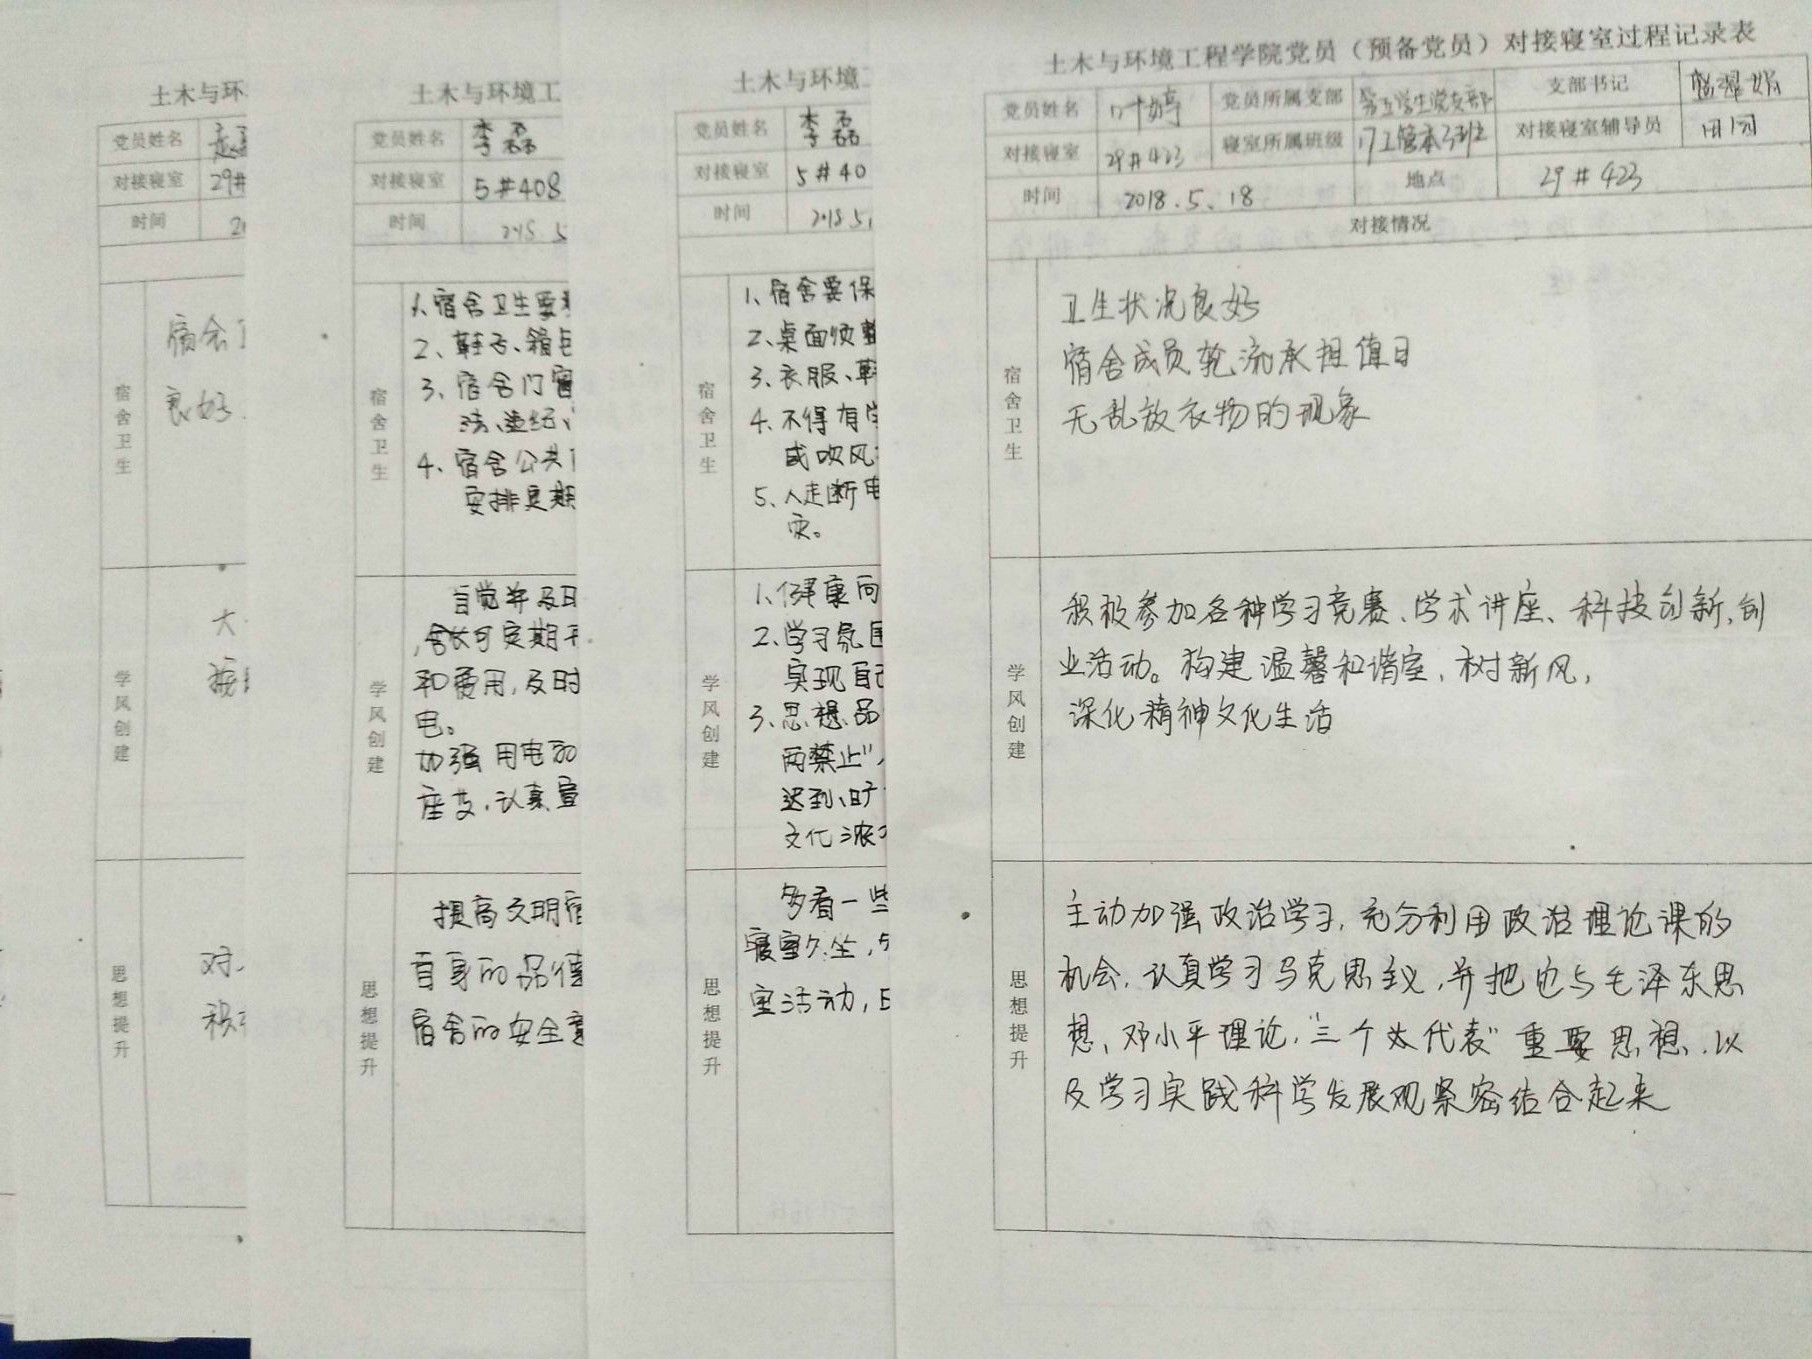 土木与环
党员姓名
对接寝室 29#
时间
宿舍卫生
宿舍
良好
学风创建
大
思想提升
对
积
土木与环境工
党员姓名 李磊
对接寝室 5#408
时间
宿舍卫生
1、宿舍卫生要
2、鞋子、箱
3、宿舍门窗
4、宿舍公共
安排定期
学风创建
自觉并及时
,舍长可定期
和费用,及时
电。
加强用电
座
认真
思想提升
提高文明宿
自身的品德
宿舍的安全意
土木与环境
党员姓名 李磊
对接寝室 5#40
时间 2018.5
宿舍卫生
1、宿舍要保
2、桌面须整
3、衣服、鞋
4、不得有
或吹风
5、人走断电
灾。
学风创建
1、健康向
2、学习氛围
实现自己
3、思想品
两禁止"
迟到、旷
文化浓
思想提升
多看一些
寝室久坐,
室活动,
土木与环境工程学院党员（预备党员）对接寝室过程记录表
党员姓名 叶婷 党员所属支部 第五学生党支部 支部书记
对接寝室 29#423 寝室所属班级 17工管本3班 对接寝室辅导员
时间 2018.5.18 地点 29#423
对接情况
宿舍卫生
卫生状况良好
宿舍成员轮流承担值日
无乱放衣物的现象
学风创建
积极参加各种学习竞赛、学术讲座、科技创新,创
业活动。构建温馨和谐室,树新风,
深化精神文化生活
思想提升
主动加强政治学习,充分利用政治理论课的
机会,认真学习马克思主义,并把它与毛泽东思
想、邓小平理论,"三个代表"重要思想,以
及学习实践科学发展观紧密结合起来